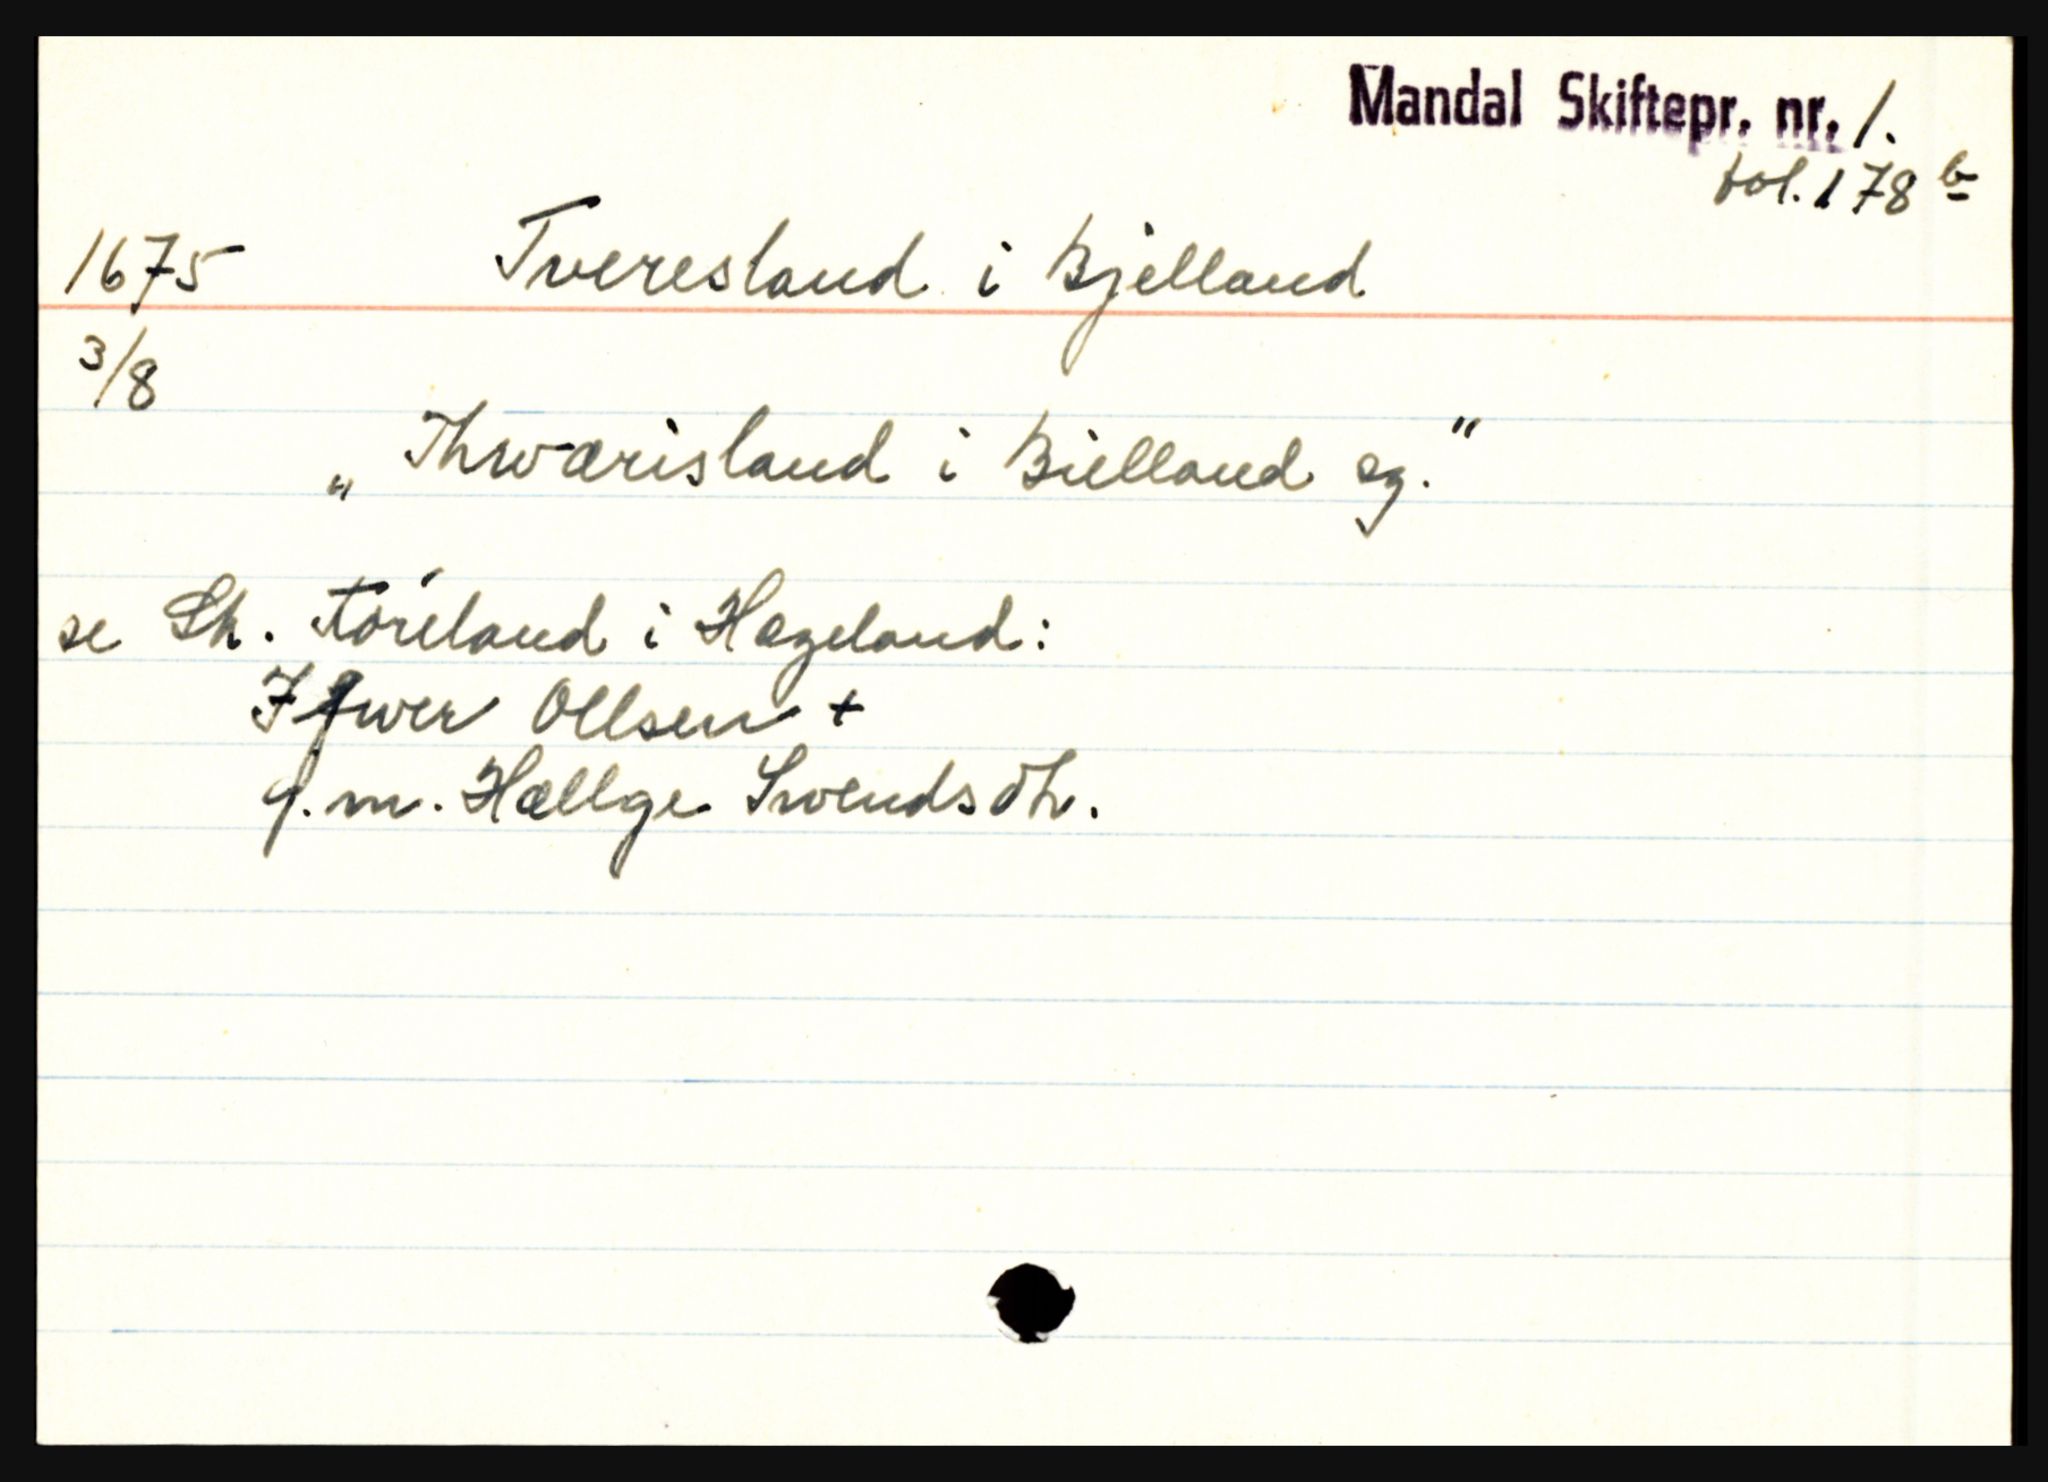 Mandal Skiftepr. nr. 1.
fol. 178 b
1675 Tveresland i Bjelland
3/8
„Thwærisland i Bielland sg."
se Sk. i Hægeland:
Ifwer Ollsen +
g.m. Hællge Swendsdtr.